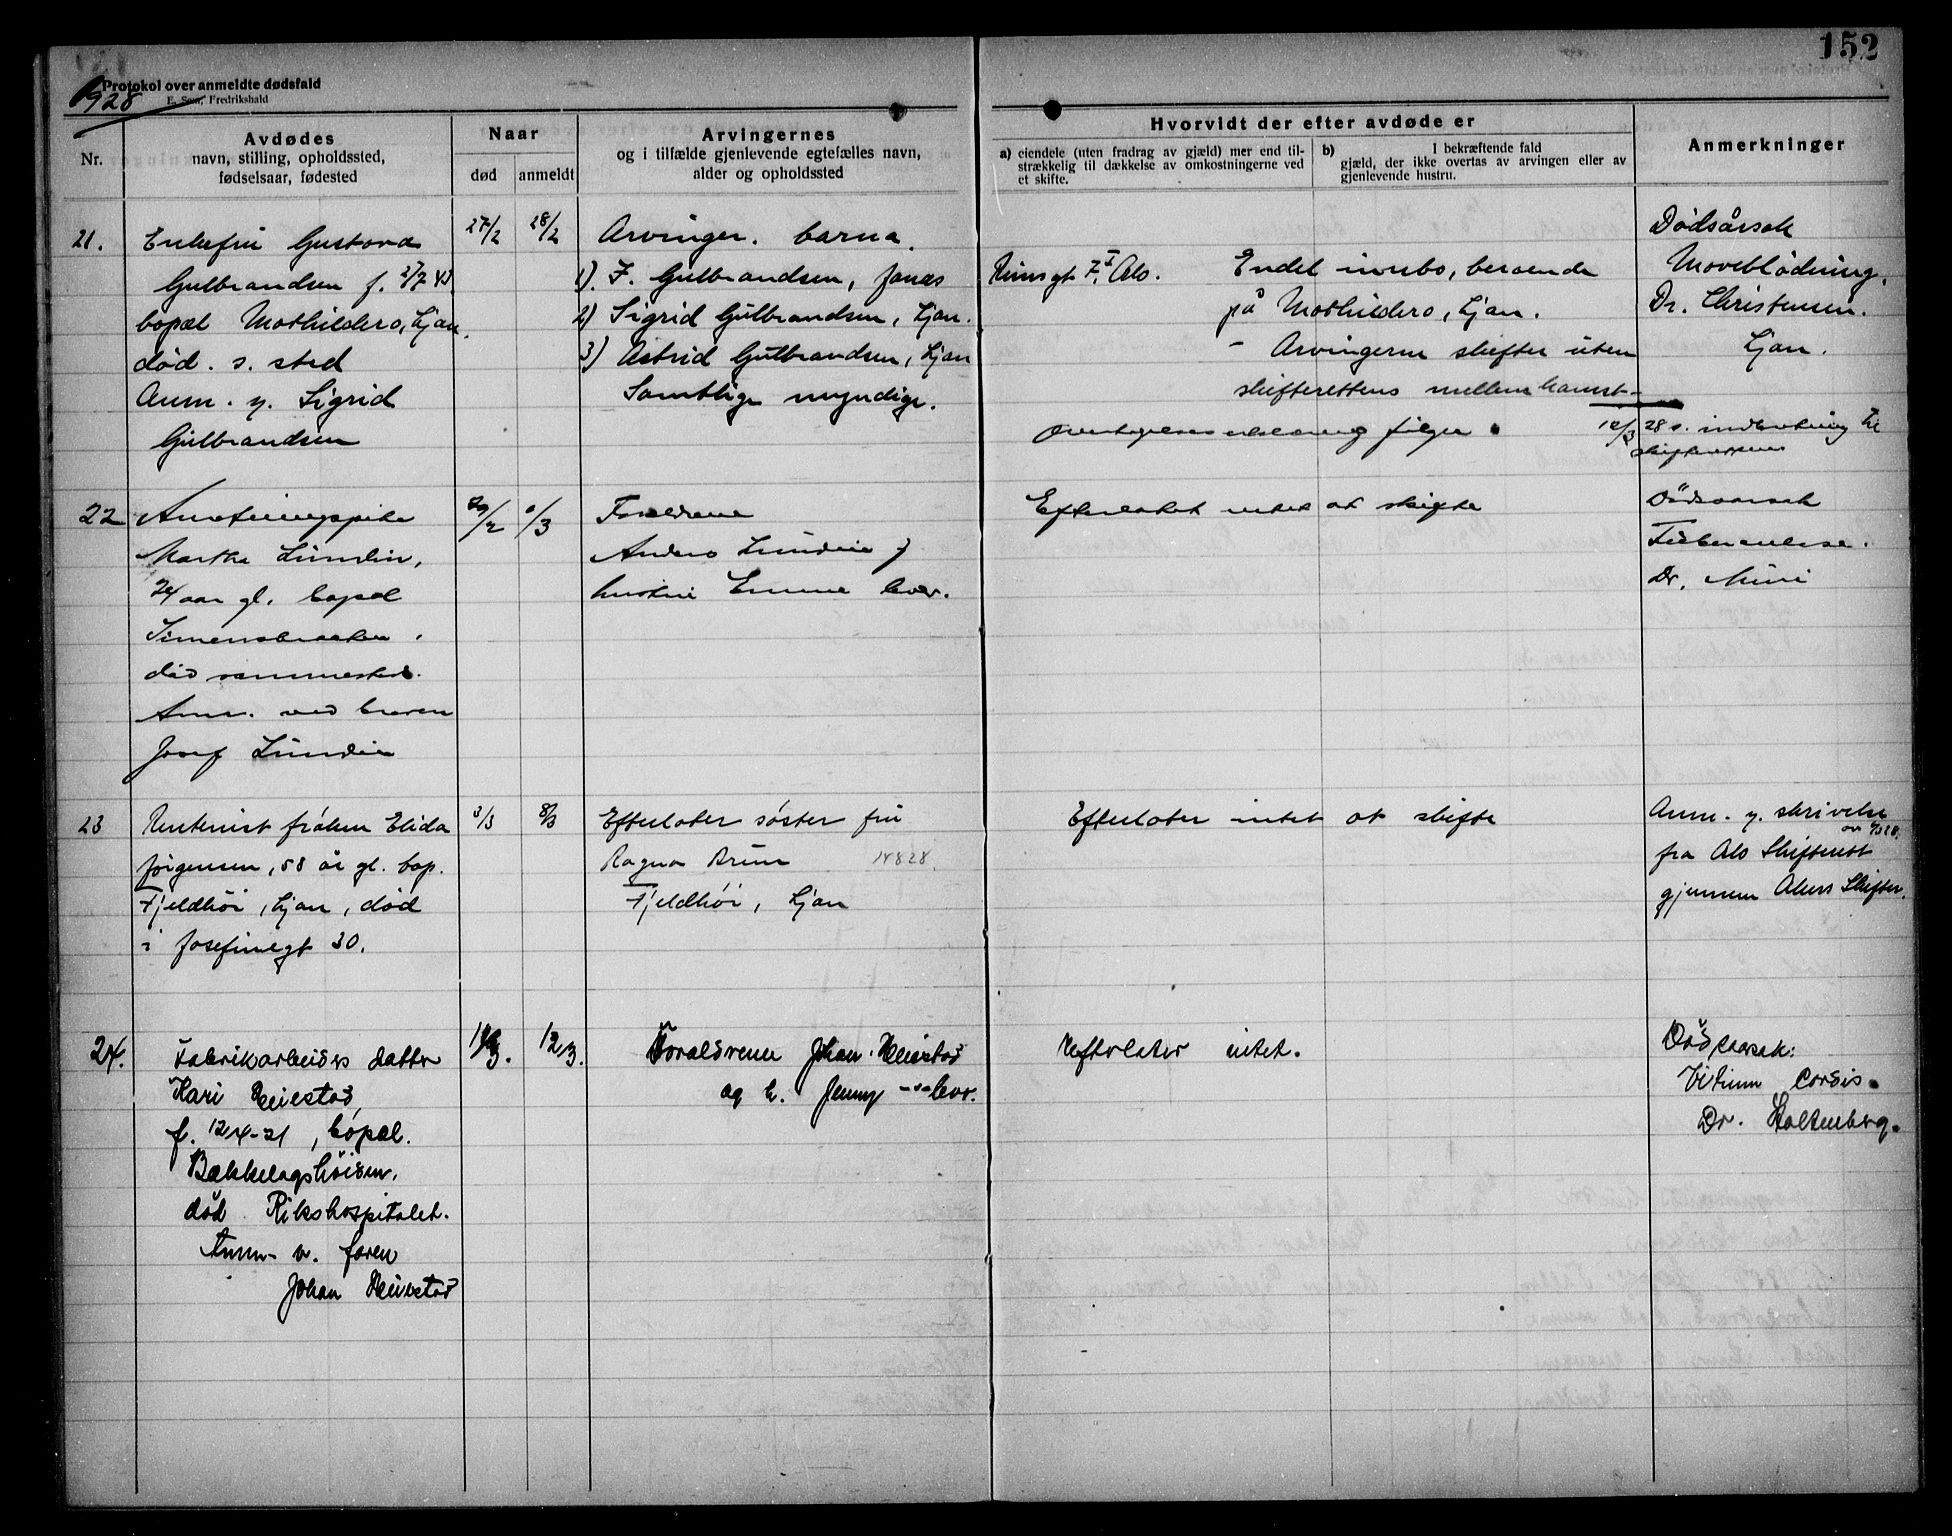 152
Protokol over anmeldte dødsfald
E. Sem, Fredrikshald
1928
Nr.
Avdødes
navn, stilling, opholdssted,
fødselsaar, fødested
Naar
død
anmeldt
Arvingernes
og i tilfælde gjenlevende egtefælles navn,
alder og opholdssted
Hvorvidt der efter avdøde er
a) eiendele (uten fradrag av gjæld) mer end til-
strækkelig til dækkelse av omkostningerne ved
et skifte.
b) I bekræftende fald
gjæld, der ikke overtas av arvingen eller av
gjenlevende hustru.
Anmerkninger
21.
Enkefru Gustava
Gulbrandsen f.
bopæl Mathildero, Ljan.
død. s. sted
Anm. v. Sigrid
Gulbrandsen
27/2
28/2
Arvinger. barna.
1). F. Gulbrandsen, Jonas
2) Sigrid Gulbrandsen, Ljan.
3) Astrid Gulbrandsen, Ljan
Samtlige myndige.
Reimsgt 7, I Oslo.
Endel innbo, beroende
på Mathildero, Ljan.
- Arvingerne skifter uten
skifterettens mellemkomst-
Overtagelseserklæring følger
12/3 28 s. indberetning til
skifteretten
Dødsårsak
Dr. Christensen.
Ljan.
22
Anstaingspike
Martha Lundin,
24 aar gl. bopæl
Simensbraaten.
død sammesteds.
Anm. ved broren
Josef Lundin
29/2
1/3
Forældrene
Anders Lundin &
hustru Emma lever.
Efterlatt intet at skifte
Dødsaarsak
Tuberculose.
Dr.
23
Rentenist frøken Elida
Jørgensen, 58 år gl. bop.
Fjeldhøi, Ljan, død
i Josefinegt 30.
3/3
8/3
Efterlater søster fru
Ragna Brun
14828
Fjeldhøi, Ljan
Efterlater intet at skifte
Anm. v. skrivelse
fra Oslo Skifterett
gjennem Akers Skifter.
24.
Fabrikarbeiders datter
Kari Heiestad,
f. 12/4-21, bopæl.
Bækkelagshøiden.
død Rikshospitalet.
Anm. v. faren
Johan Heiestad
12/3.
Forældrene Johan Heiestad
og h. Jenny -"- lever.
Efterlater intet.
Dødsaarsak:
Vitium Cordis.
Dr. Stoltenberg.